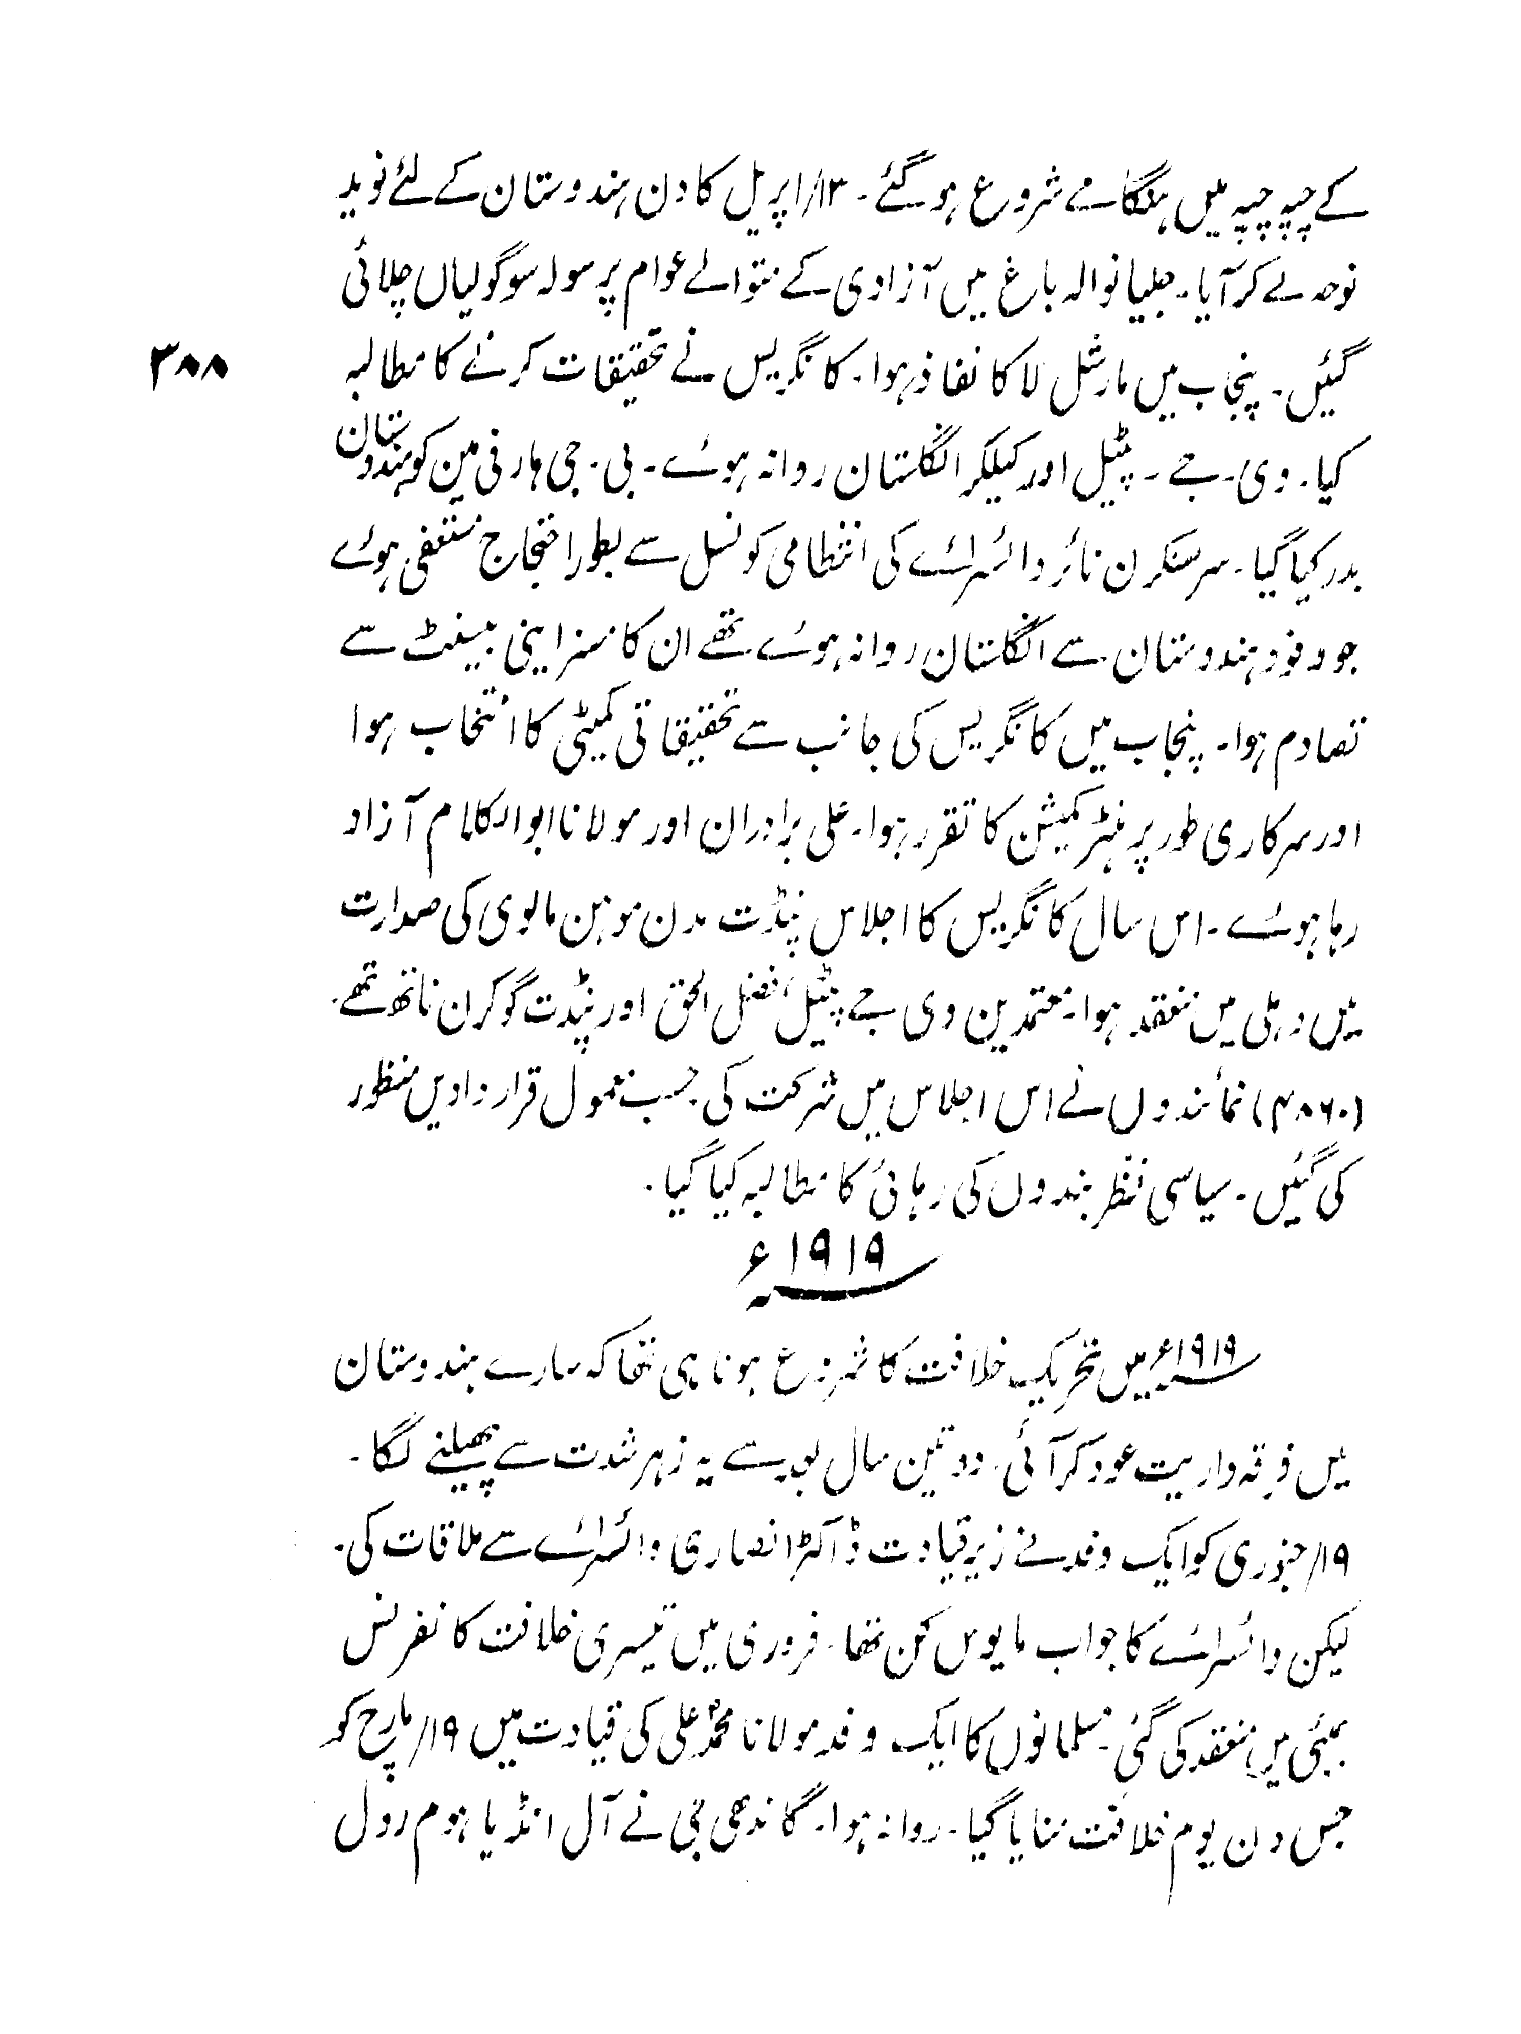 کے چپہ چپہ میں ہنگامے شروع ہوگئے۔ ۱۳/اپریل کا دن ہندوستان کے لئے نوید
نوحہ لے کر آیا۔ جلیانوالہ باغ میں آزادی کے متوالے عوام پر سولہ سو گولیاں چلائی
گئیں۔ پنجاب میں مارشل لا کا نفاذ ہوا۔ کانگریس نے تحقیقات کرنے کا مطالبہ
۳۸۸
کیا۔ وی۔ جے۔ پٹیل اور کیلکر انگلستان روانہ ہوئے۔ بی۔ جی ہارنی مین کو ہندوستان
بدر کیا گیا۔ سر سنکرن نائر وائسرائے کی انتظامی کونسل سے بطور احتجاج مستعفی ہوئے
جو وفود ہندوستان سے انگلستان روانہ ہوئے تھے ان کا مسز اینی بیسنٹ سے
تصادم ہوا۔ پنجاب میں کانگریس کی جانب سے تحقیقاتی کمیٹی کا انتخاب ہوا
اور سرکاری طور پر ہنٹر کمیشن کا تقرر ہوا۔ علی برادران اور مولانا ابوالکلام آزاد
رہا ہوئے۔ اس سال کانگریس کا اجلاس پنڈت مدن موہن مالوی کی صدارت
میں دہلی میں منعقد ہوا۔ معتمدین وی جے پٹیل، فضل الحق اور پنڈت گوکرن ناتھ تھے۔
(۴۸۶۰) نمائندوں نے اس اجلاس میں شرکت کی حسب معمول قراردادیں منظور
کی گئیں۔ سیاسی نظر بندوں کی رہائی کا مطالبہ کیا گیا۔
۱۹۱۹ء
۱۹۱۹ء میں تحریک خلافت کا شروع ہونا ہی تھا کہ سارے ہندوستان
میں فرقہ واریت عود کر آئی۔ دو تین سال بعد سے یہ زہر شدت سے پھیلنے لگا۔
۱۹/جنوری کو ایک وفد نے زیر قیادت ڈاکٹر انصاری وائسرائے سے ملاقات کی۔
لیکن وائسرائے کا جواب مایوس کن تھا۔ فروری میں تیسری خلافت کانفرنس
بمبئی میں منعقد کی گئی۔ مسلمانوں کا ایک وفد مولانا محمدؐ علی کی قیادت میں ۱۹/مارچ کو
جس دن یوم خلافت منایا گیا۔ روانہ ہوا۔ گاندھی جی نے آل انڈیا ہوم رول